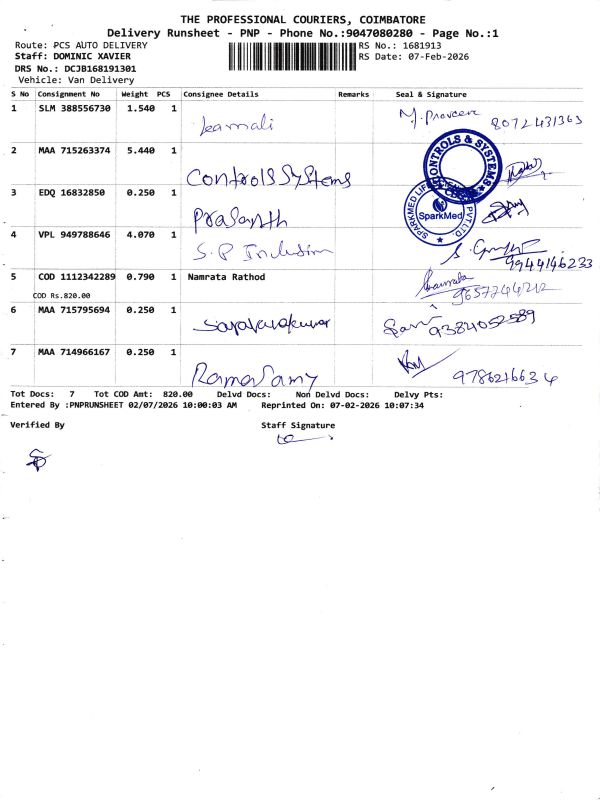 THE PROFESSIONAL COURIERS, COIMBATORE
Delivery Runsheet - PNP - Phone No.:9047080280 - Page No.:1
Route: PCS AUTO DELIVERY
RS No.: 1681913
Staff: DOMINIC XAVIER
RS Date: 07-Feb-2026
DRS No.: DCJB168191301
Vehicle: Van Delivery
S No Consignment No Weight PCS Consignee Details Remarks Seal & Signature
1 SLM 388556730 1.540 1
8072431363
2 MAA 715263374 5.440 1 Controls Systems
CONTROLS & SYSTEMS
3 EDQ 16832850 0.250 1 Prasanth
SparkMed
4 VPL 949788646 4.070 1 S.P
9944146233
5 COD 1112342289 0.790 1 Namrata Rathod
Namrata
9657244212
COD Rs.820.00
6 MAA 715795694 0.250 1
9384052589
7 MAA 714966167 0.250 1 Ramasamy
9786216634
Tot Docs: 7 Tot COD Amt: 820.00 Delvd Docs: Non Delvd Docs: Delvy Pts:
Entered By :PNPRUNSHEET 02/07/2026 10:00:03 AM Reprinted On: 07-02-2026 10:07:34
Verified By Staff Signature